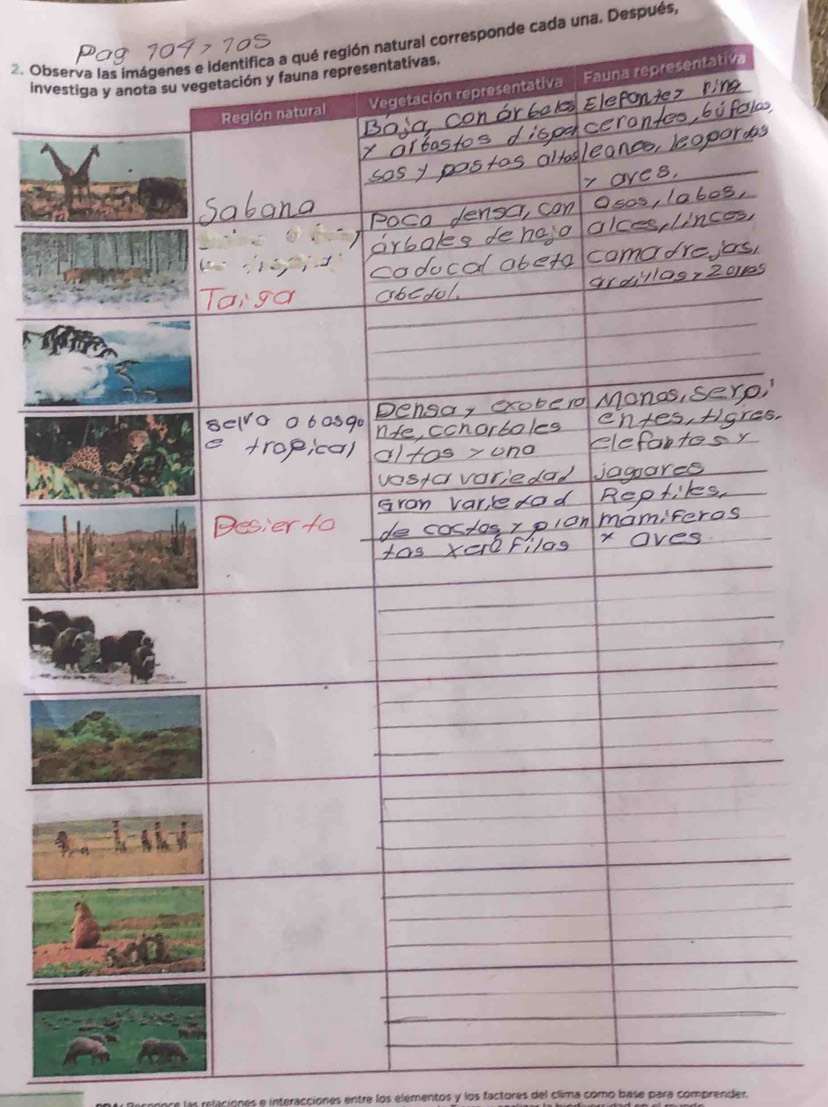 Pag 104 y 105
2. Observa las imágenes e identifica a qué región natural corresponde cada una. Después,
investiga y anota su vegetación y fauna representativas.
Región natural Vegetación representativa Fauna representativa
Sabana
Baja, con árboles
y arbustos dispe
sos y pastos altos
Elefantes rino
cerontes, búfalos,
leones, leopardos
y aves.
Taiga
Poca densa, con
árboles de hoja
caducal abeto
abedul.
osos, lobos,
alces, linces,
comadrejas,
ardillas y zorros
selva o bosqu
e tropical
Densa y exubera
nte, con arboles
altos y una
vasta variedad
Monos, serpi
entes, tigres.
elefantes y
jaguares
Desierto
Gran variedad
de cactos y plan
tas xerófilas
Reptiles,
mamiferos
y aves
Reconoce las relaciones e interacciones entre los elementos y los factores del clima como base para comprender,